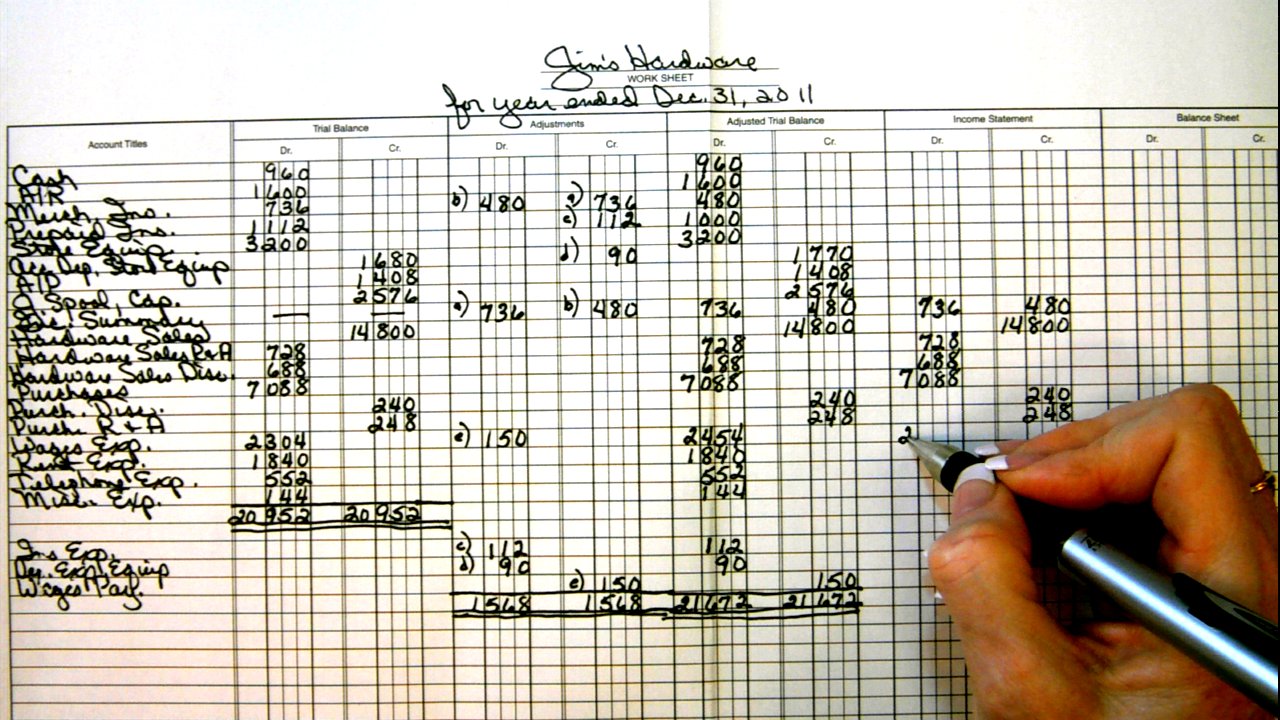 Jim's Hardware
WORK SHEET
for year ended Dec. 31, 2011
Account Titles Trial Balance Adjustments Adjusted Trial Balance Income Statement Balance Sheet
Dr. Cr. Dr. Cr. Dr. Cr. Dr. Cr. Dr. Cr.
Cash 960 960
A/R 1600 1600
Merch. Inv. 736 b) 480 a) 736 480
Prepaid Ins. 1112 c) 112 1000
Store Equip. 3200 3200
Acc. Dep. Store Equip 1680 d) 90 1770
A/P 1408 1408
J. Spool, Cap. 2576 2576
Inc. Summary — — a) 736 b) 480 736 480 736 480
Hardware Sales 14800 14800 14800
Hardware Sales R&A 728 728 728
Hardware Sales Disc. 688 688 688
Purchases 7088 7088 7088
Purch. Disc. 240 240 240
Purch. R&A 248 248 248
Wages Exp. 2304 e) 150 2454 2
Rent Exp. 1840 1840
Telephone Exp. 552 552
Misc. Exp. 144 144
20952 20952
Ins Exp. c) 112 112
Dep. Exp. Equip d) 90 90
Wages Pay. e) 150 150
1568 1568 21672 21672